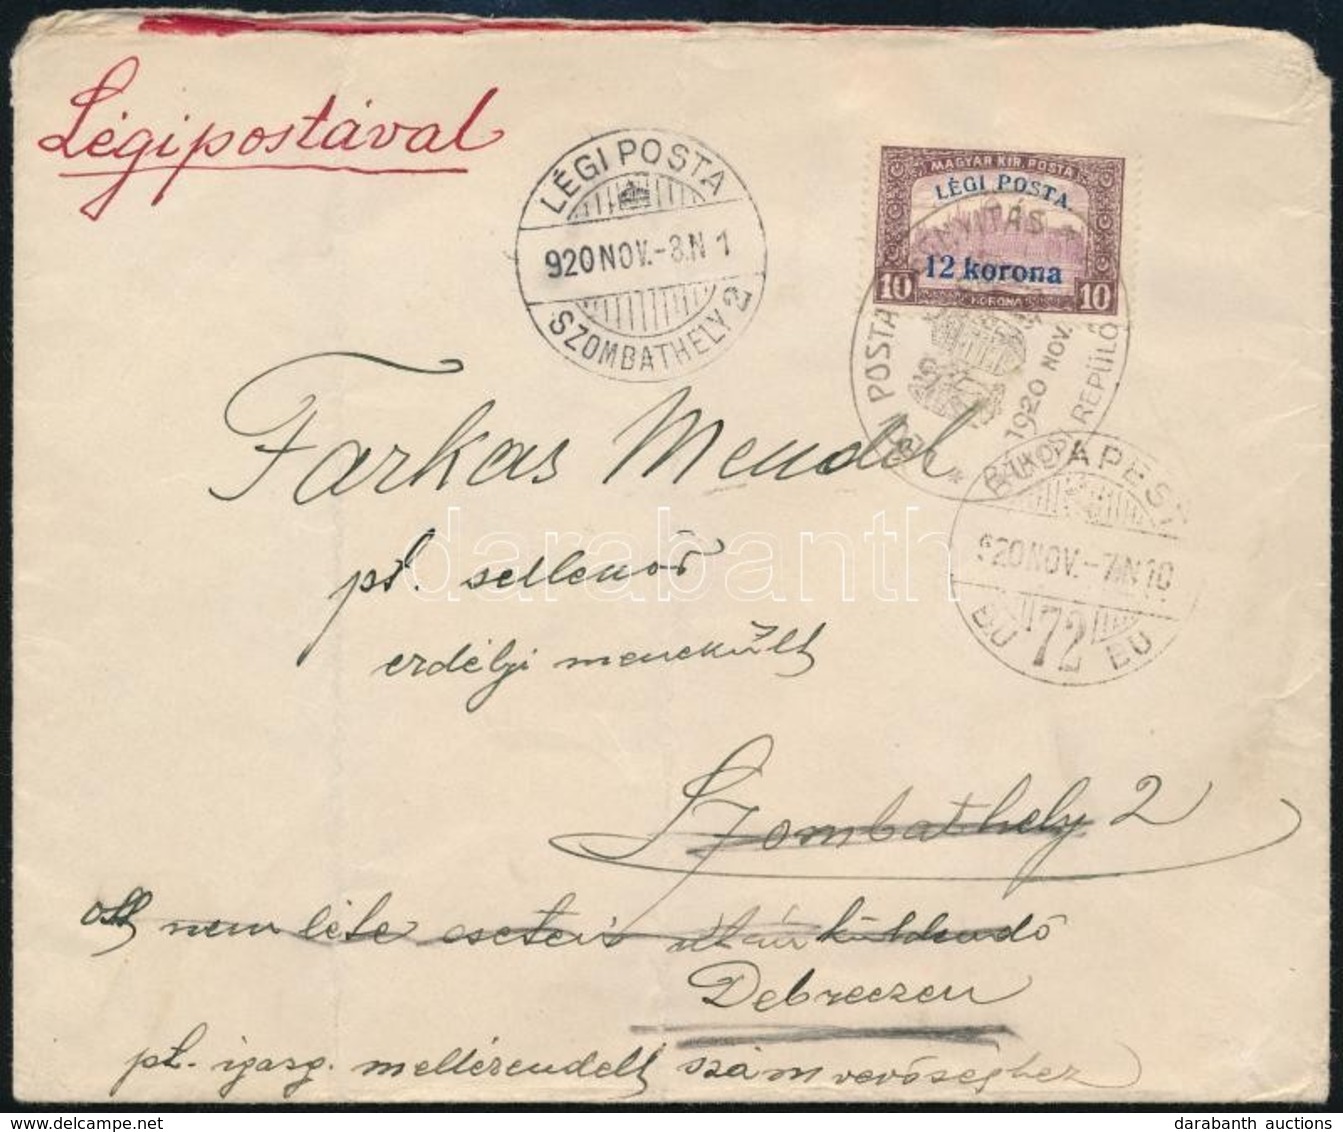 Légipostával
LÉGI POSTA
920 NOV.-8.N 1
SZOMBATHELY 2
MAGYAR KIR. POSTA
LÉGI POSTA
12 korona
10 KORONA 10
POSTA NYITÁS *
1920 NOV.
REPÜLŐ
BUDAPEST
920 NOV.-7.N 10
BU 72 BU
Farkas Mendel
pü. sellenőr
erdélyi menekült
Szombathely 2
ott nem léte esetén után küldendő
Debreczen
pü. igazg. mellérendelt számvevőséghez
darabanth
darabanth auctions